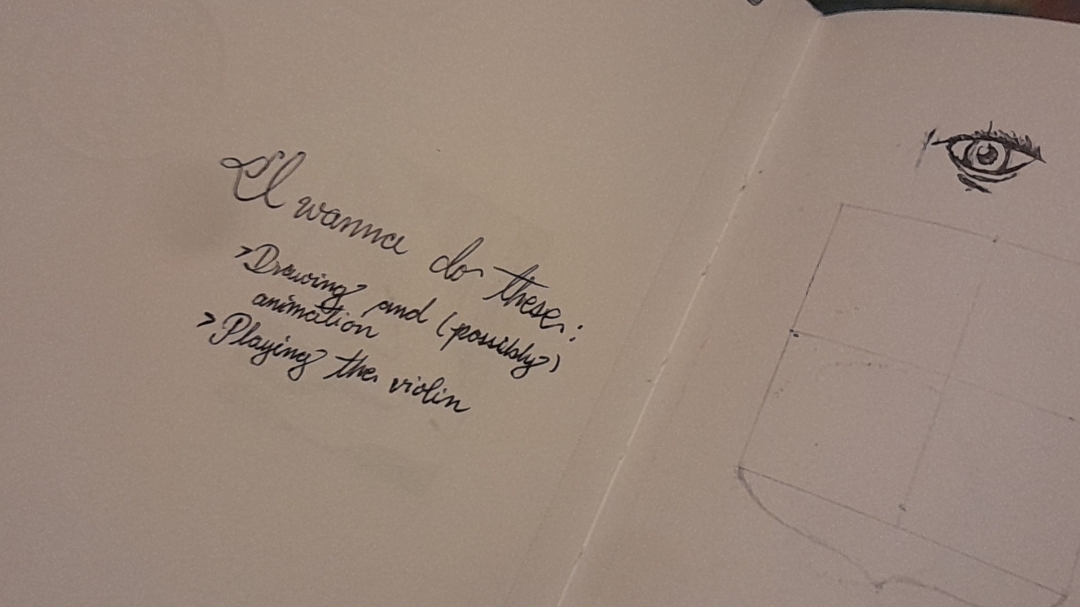 I wanna do these:
>Drawing and (possibly)
animation
>Playing the violin